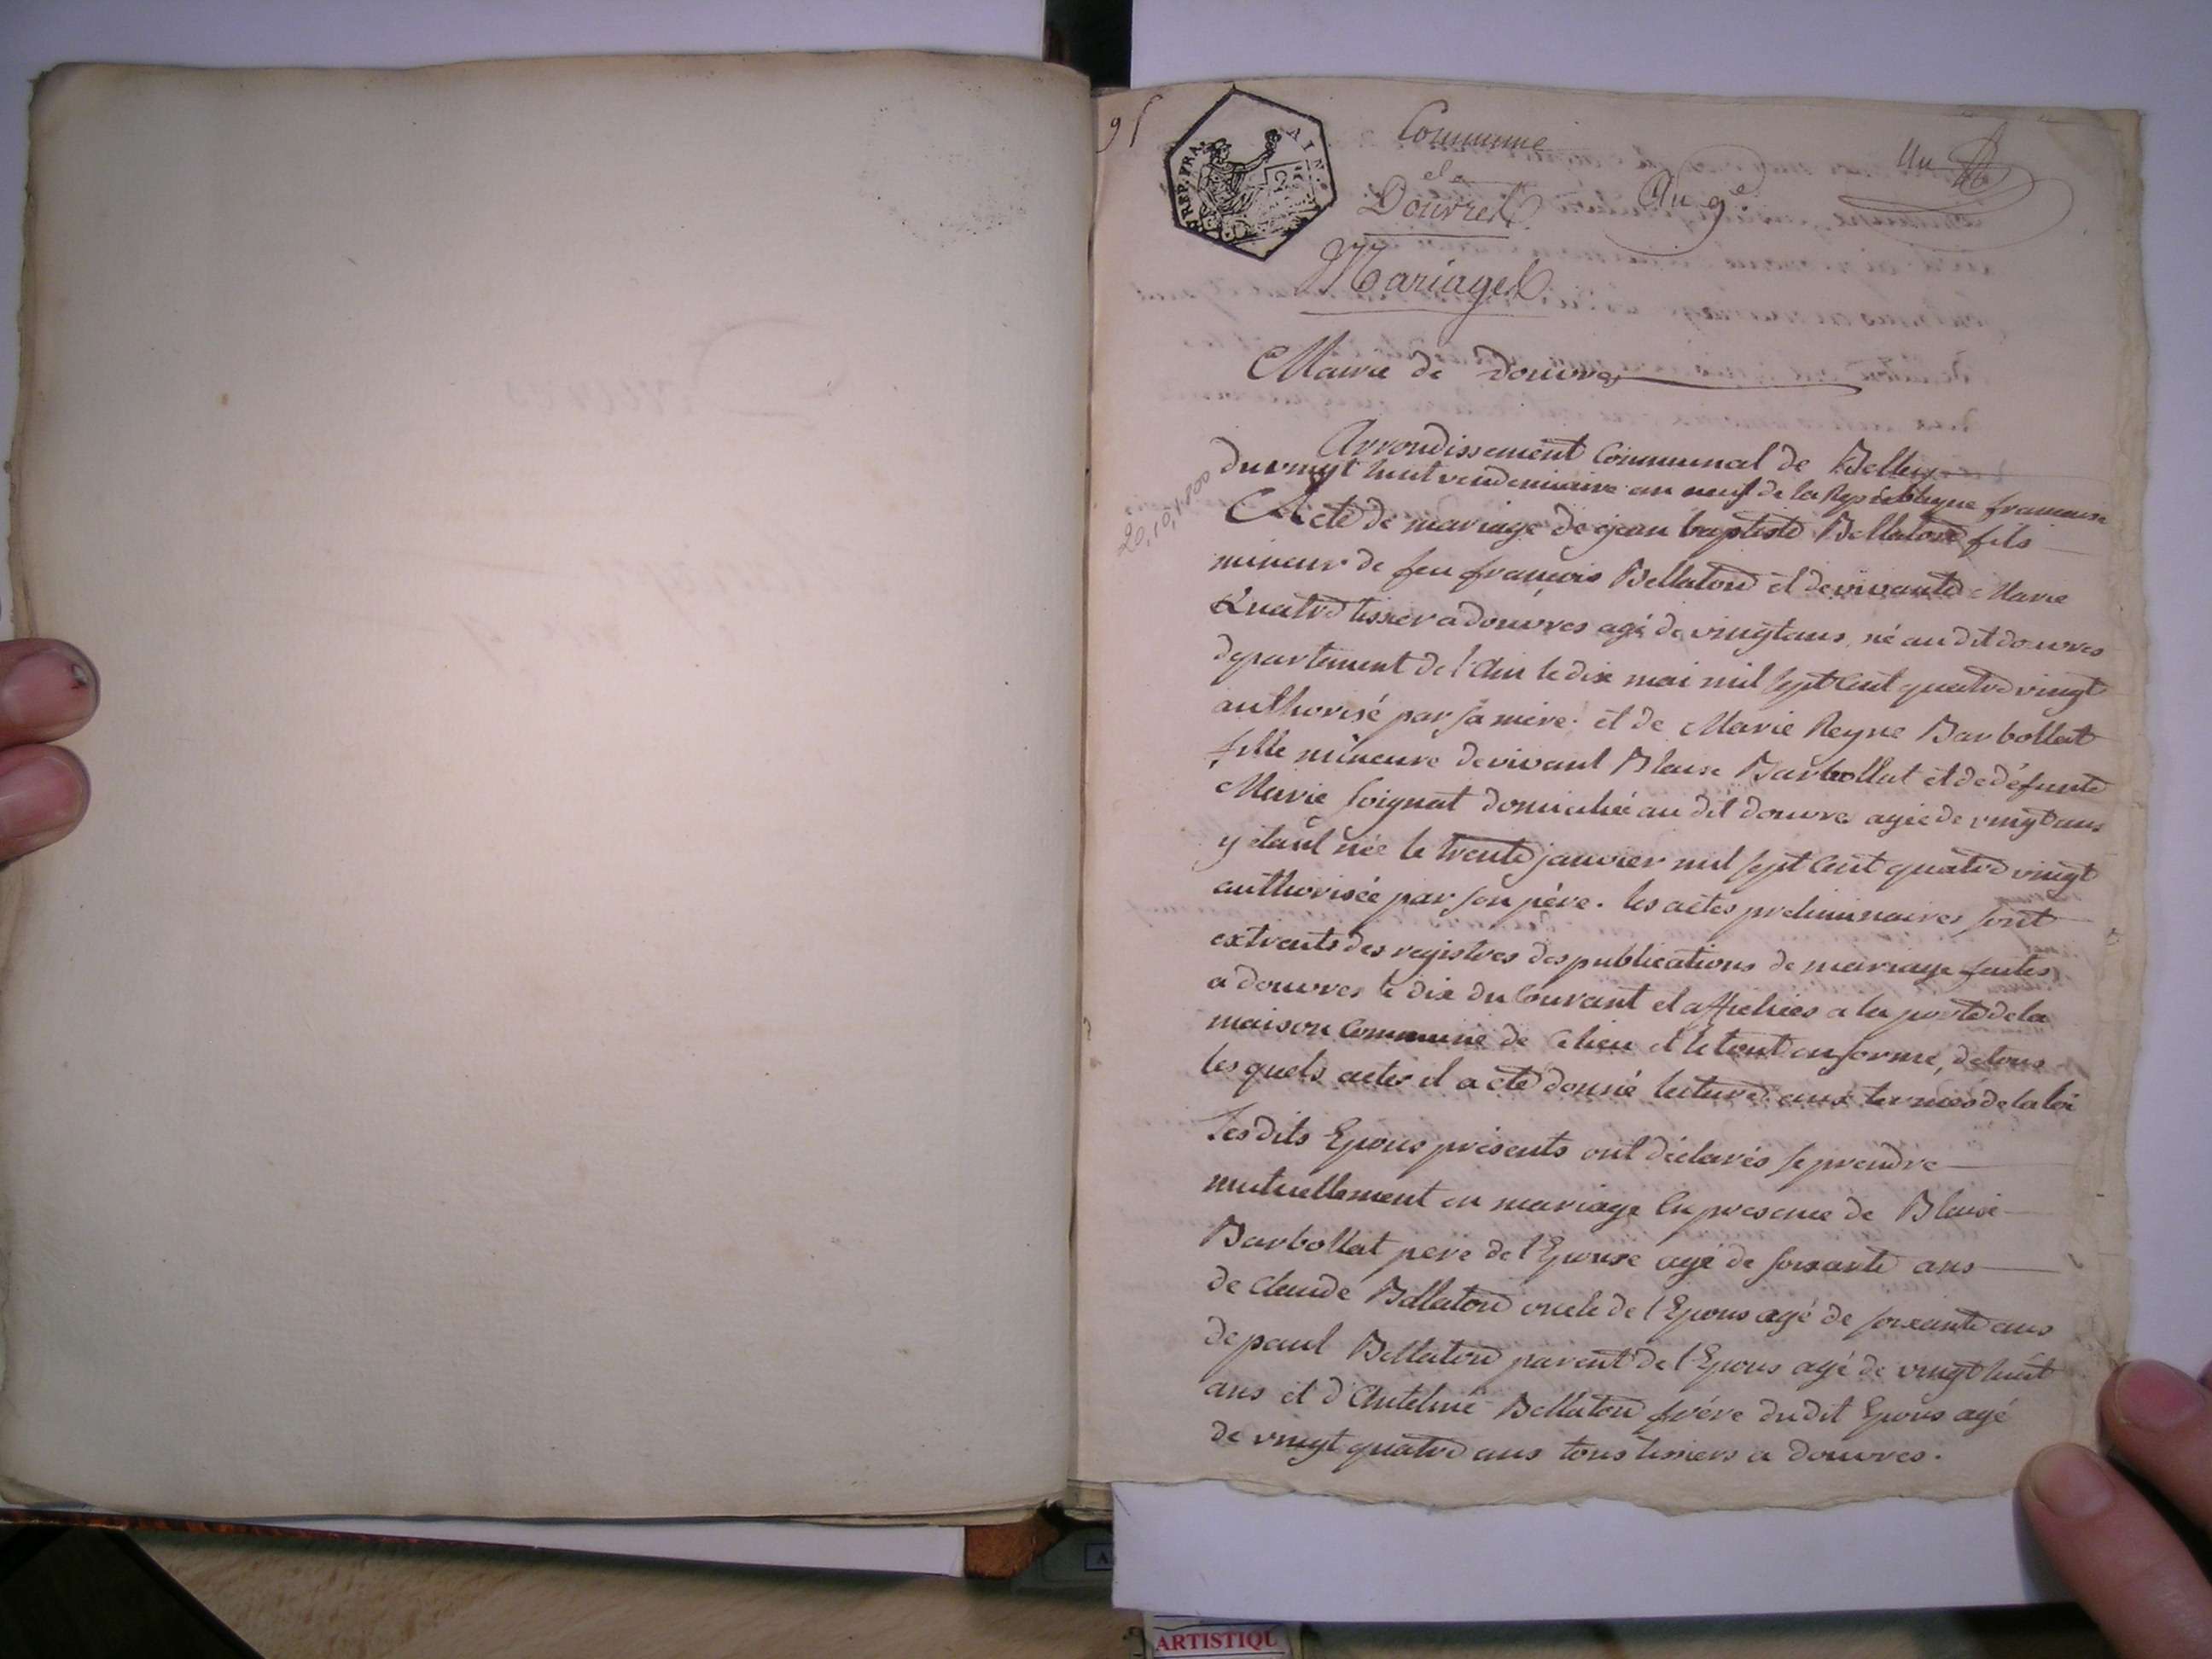 91
REP. FRA. AIN. 25
Commune
de
Douvres
An 9e
un
Mariages
Mairie de Douvres
Arrondissement Communal de Belley
du vingt huit vendemiaire an neuf de la Republique francaise
20,10,1800
Acte de mariage de jean baptiste Bellaton fils
mineur de feu françois Bellaton et de vivante Marie
Quatre tissier a douvres agé de vingt ans, né au dit douvres
departement de l'Ain le dix mai mil sept cent quatre vingt
authorisé par sa mere. et de Marie Reyne Barbollat
fille mineure de vivant Blaise Barbollat et de défunte
Marie Soignat domiciliée au dit douvres agée de vingt ans
y étant née le trente janvier mil sept cent quatre vingt
authorisée par son père. les actes preliminaires sont
extraits des registres des publications de mariage faites
a douvres le dix du Courant et affichées a la porte de la
maison Commune de Celieu et le tout en forme, de tous
les quels actes il a été donné lecture aux termes de la loi
Les dits Epoux présents ont déclarés se prendre
mutuellement en mariage En presence de Blaise
Barbollat pere de l'Epouse agé de soixante ans
de Claude Bellaton oncle de l'Epoux agé de soixante ans
de paul Bellaton parent de l'Epoux agé de vingt huit
ans et d'Antelme Bellaton frére du dit Epoux agé
de vingt quatre ans tous tissiers a douvres.
ARTISTIQU